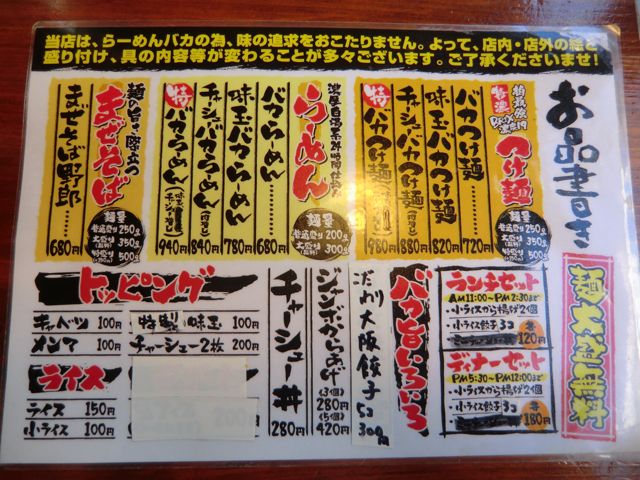 当店は、らーめんバカの為、味の追求をおこたりません。よって、店内・店外の絵と
盛り付け、具の内容等が変わることが多々ございます。ご了承くださいませ!
お品書き
特濃
つけ麺
麺量
普通盛り 250g
大盛り 350g
特盛り 500g
バカつけ麺 720円
味玉バカつけ麺 820円
チャーシューバカつけ麺 880円
特バカつけ麺 980円
らーめん
麺量
普通盛り 200g
大盛り 300g
バカらーめん 680円
味玉バカらーめん 780円
チャーシューバカらーめん 840円
特バカらーめん 940円
麺の旨さ際立つ
まぜそば
麺量
普通盛り 250g
大盛り 350g
特盛り 500g
まぜそば野郎 680円
ランチセット
AM11:00~PM2:30まで
・小ライスから揚げ2個
・小ライス餃子3コ
120円
ディナーセット
PM5:30~PM12:00まで
・小ライスから揚げ2個
・小ライス餃子3コ
180円
バカ旨いろいろ
こだわり大阪餃子5コ300円
ジャンボからあげ
(3個)
280円
(5個)
420円
チャーシュー丼 280円
トッピング
キャベツ 100円
メンマ 100円
特製 味玉 100円
チャーシュー2枚 200円
ライス
ライス 150円
小ライス 100円